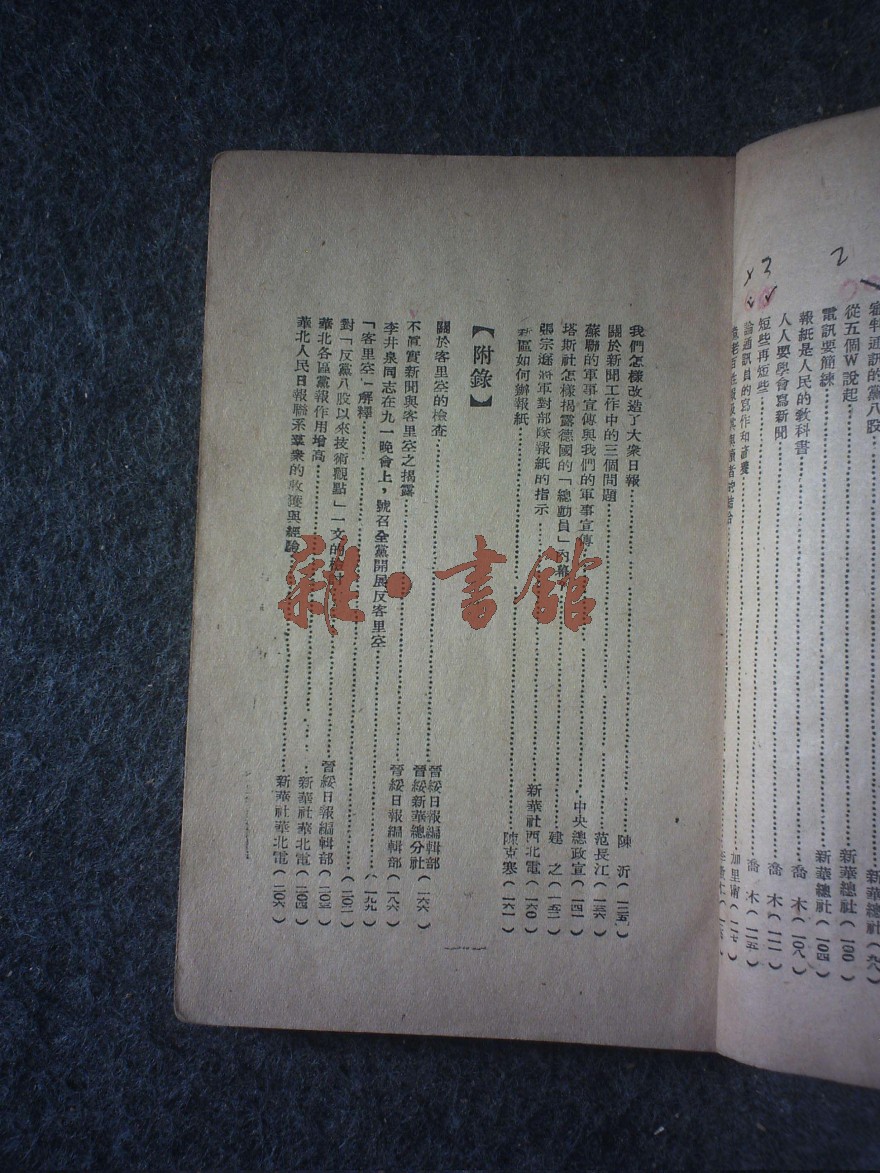 從五個W說起……新華總社(一〇〇)
電訊要簡練……新華總社(一〇四)
報紙是人民的教科書……喬木(一〇八)
人人要學會寫新聞……喬木(一一一)
短些再短些……喬木(一一五)
論通訊員的寫作和
2
3
我們怎樣改造了大衆日報……陳沂(一三五)
關於新聞工作中的三個問題……范長江(一三六)
蘇聯的軍事宣傳與我們的軍事宣傳……中央總政宣(一四一)
塔斯社怎樣揭露德國的「總動員」內幕……建之(一五二)
張宗遜將軍對部隊報紙的指示……新華社西北電(一六〇)
區如何辦報紙……陳克寒(一六一)
【附錄】
關於客里空的檢查……晉綏日報編輯部 晉綏新華總分社(一六六)
不眞實新聞與客里空之揭露……晉綏日報編輯部(一八六)
李井泉同志在九一晚會上,號召全黨開展反客里空……(一九九)
「客里空」解釋……(二〇二)
對「反黨八股以來技術觀點」一文的……晉綏日報編輯部(二〇三)
華北各區黨報作用增高……新華社華北電(二〇四)
華北人民日報聯系羣衆的收獲與經驗……新華社華北電(二〇六)
雜·書館